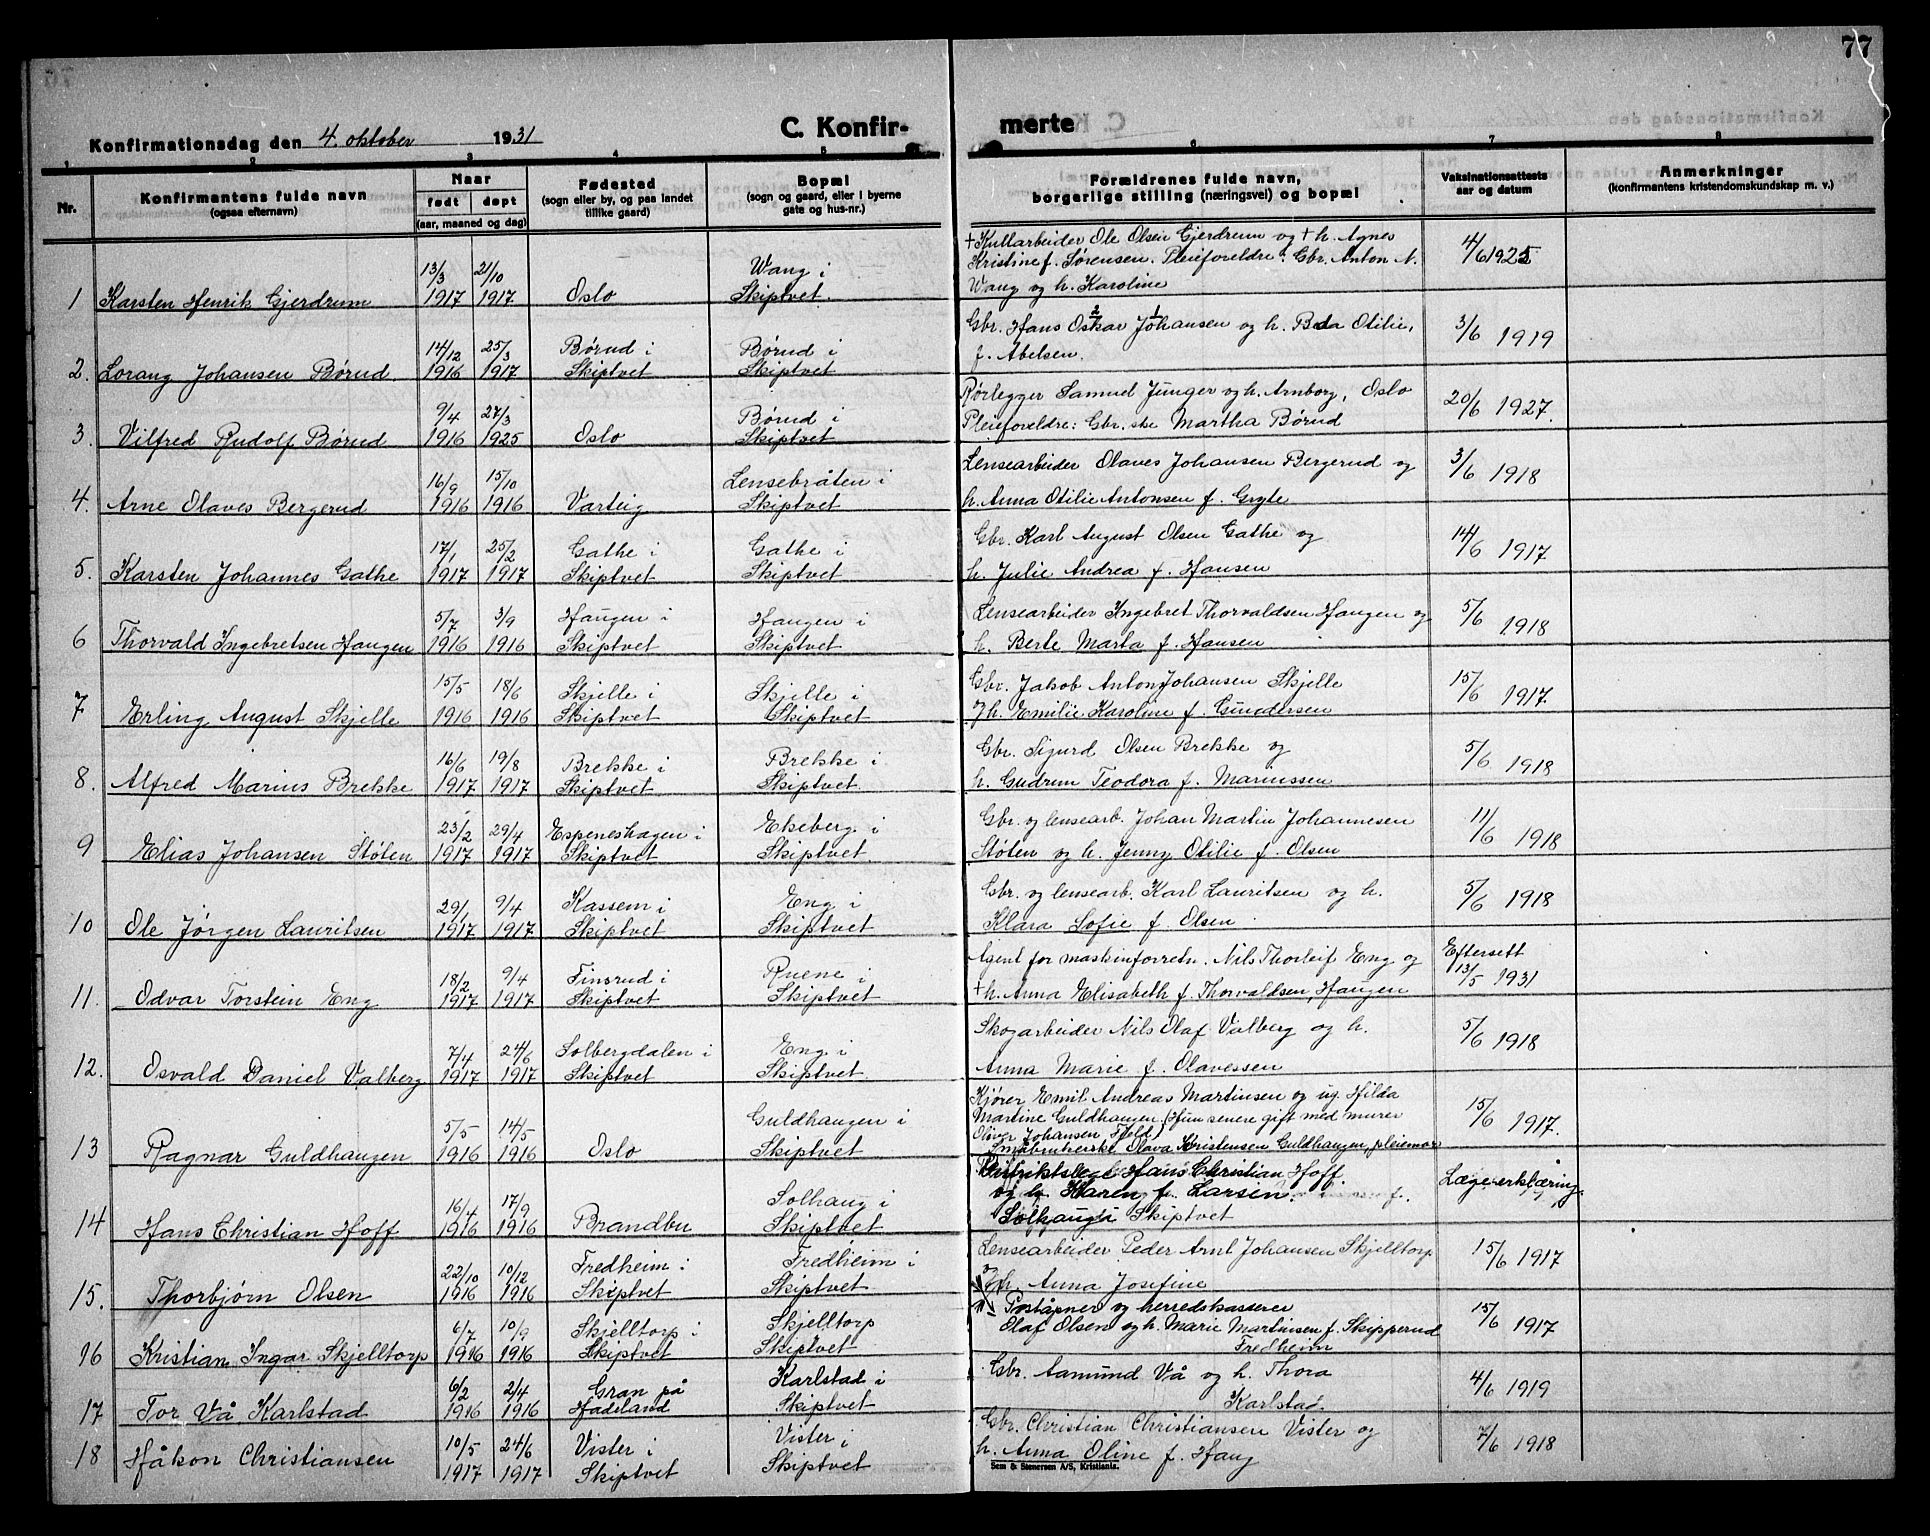 77
Konfirmationsdag den 4. oktober 1931
C. Konfir-
merte
1 2 3 4 5 6 7 8
Nr.
Konfirmantens fulde navn
(ogsaa efternavn)
Naar
født døpt
(aar, maaned og dag)
Fødested
(sogn eller by, og paa landet
tillike gaard)
Bopæl
(sogn og gaard, eller i byerne
gate og hus-nr.)
Forældrenes fulde navn,
borgerlige stilling (næringsvei) og bopæl
Vaksinationsattests
aar og datum
Anmerkninger
(konfirmantens kristendomskundskap m. v.)
13/3 21/10 Wang i
1 Karsten Henrik Gjerdrum 1917 1917 Oslo Skiptvet.
+ Kullarbeider Ole Olsen Gjerdrum og + h. Agnes
Kristine f. Sørensen. Pleieforeldre: Gbr. Anton A.
Wang og h. Karoline
4/6 1925
14/12 25/3 Børud i Børud i
2. Lorang Johansen Børud 1916 1917 Skiptvet Skiptvet
Gbr. Hans Oskar Johansen og h. Beda Otilie,
f. Abelsen.
3/6 1919
9/4 27/3 Børud i
3. Vilfred Rudolf Børud 1916 1925 Oslo Skiptvet
Rørlegger Samuel Junger og h. Arnborg, Oslo
Pleieforeldre: Gbr. ske Martha Børud
20/6 1927.
16/9 15/10 Lensebråten i
4. Arne Olaves Bergerud 1916 1916 Varteig Skiptvet
Lensearbeider Olaves Johansen Bergerud og
h. Anna Otilie Antonsen f. Gryte
3/6 1918
17/1 25/2 Gathe i Gathe i
5. Karsten Johannes Gathe 1917 1917 Skiptvet Skiptvet
Gbr. Karl August Olsen Gathe og
h. Julie Andrea f. Hansen
14/6 1917
5/7 3/9 Haugen i Haugen i
6 Thorvald Ingebretsen Haugen 1916 1916 Skiptvet Skiptvet
Lensearbeider Ingebret Thorvaldsen Haugen og
h. Berte Marta f. Hansen
5/6 1918
15/5 18/6 Skjelle i Skjelle i
7 Erling August Skjelle 1916 1916 Skiptvet Skiptvet
Gbr. Jakob Anton Johansen Skjelle
h. Emilie Karoline f. Gundersen
15/6 1917.
16/6 19/8 Brekke i Brekke i
8. Alfred Marius Brekke 1917 1917 Skiptvet Skiptvet
Gbr. Sigurd Olsen Brekke og
h. Gudrun Teodora f. Mariussen
5/6 1918
23/2 29/4 Espeneshagen i Ekeberg i
9 Elias Johansen Støten 1917 1917 Skiptvet Skiptvet.
Gbr. og lensearb. Johan Martin Johannesen
Støten og h. Jenny Otilie f. Olsen
11/6 1918
29/1 9/4 Kassem i Eng i
10 Ole Jørgen Lauritsen 1917 1917 Skiptvet Skiptvet
Gbr. og lensearb. Karl Lauritsen og h.
Klara Sofie f. Olsen
5/6 1918
18/2 9/4 Finsrud i Ruene i
11. Odvar Torstein Eng 1917 1917 Skiptvet Skiptvet
Agent for maskinforretn. Nils Thorleif Eng og
+ h. Anna Elisabeth f. Thorvaldsen, Haugen
Eftersett
13/5 1931
7/4 24/6 Solbergdalen i Eng i
12. Osvald Daniel Valberg 1917 1917 Skiptvet Skiptvet
Skogarbeider Nils Olaf Valberg og h.
Anna Marie f. Olavessen
5/6 1918
5/5 14/5 Guldhaugen i
13 Ragnar Guldhaugen 1916 1916 Oslo Skiptvet
Kjører Emil Andreas Martinsen og ug. Hilda
Martine Guldhaugen (Hun senere gift med murer
Oliver Johansen Fjeld)
Småbrukerske Olava Kristensen Guldhaugen, pleiemor
15/6 1917.
16/4 17/9 Solhaug i
14 Hans Christian Hoff 1916 1916 Brandbu Skiptvet
Distriktslege Hans Christian Hoff
og h. Karen f. Larsen.
Solhaug i Skiptvet
Lægeerklæring
22/10 10/12 Fredheim i Fredheim i
15. Thorbjørn Olsen 1916 1916 Skiptvet Skiptvet
Lensearbeider Peder Arnt Johansen Skjelltorp
og h. Anna Josefine
15/6 1917
6/7 10/9 Skjelltorp i Skjelltorp
16 Kristian Ingar Skjelltorp 1916 1916 Skiptvet Skiptvet
Poståpner og herredskasserer
Olaf Olsen og h. Marie Martinsen f. Skipperud
Fredheim
15/6 1917
6/2 2/4 Gran på Karlstad i
17 Tor Vå Karlstad 1916 1916 Hadeland Skiptvet
Gbr. Aamund Vå og h. Thora
Karlstad.
4/6 1919
10/5 24/6 Vister i Vister i
18 Håkon Christiansen 1917 1917 Skiptvet Skiptvet
Gbr. Christian Christiansen Vister og
h. Anna Oline f. Haug
7/6 1918
Sem & Stenersen A/S, Kristiania.